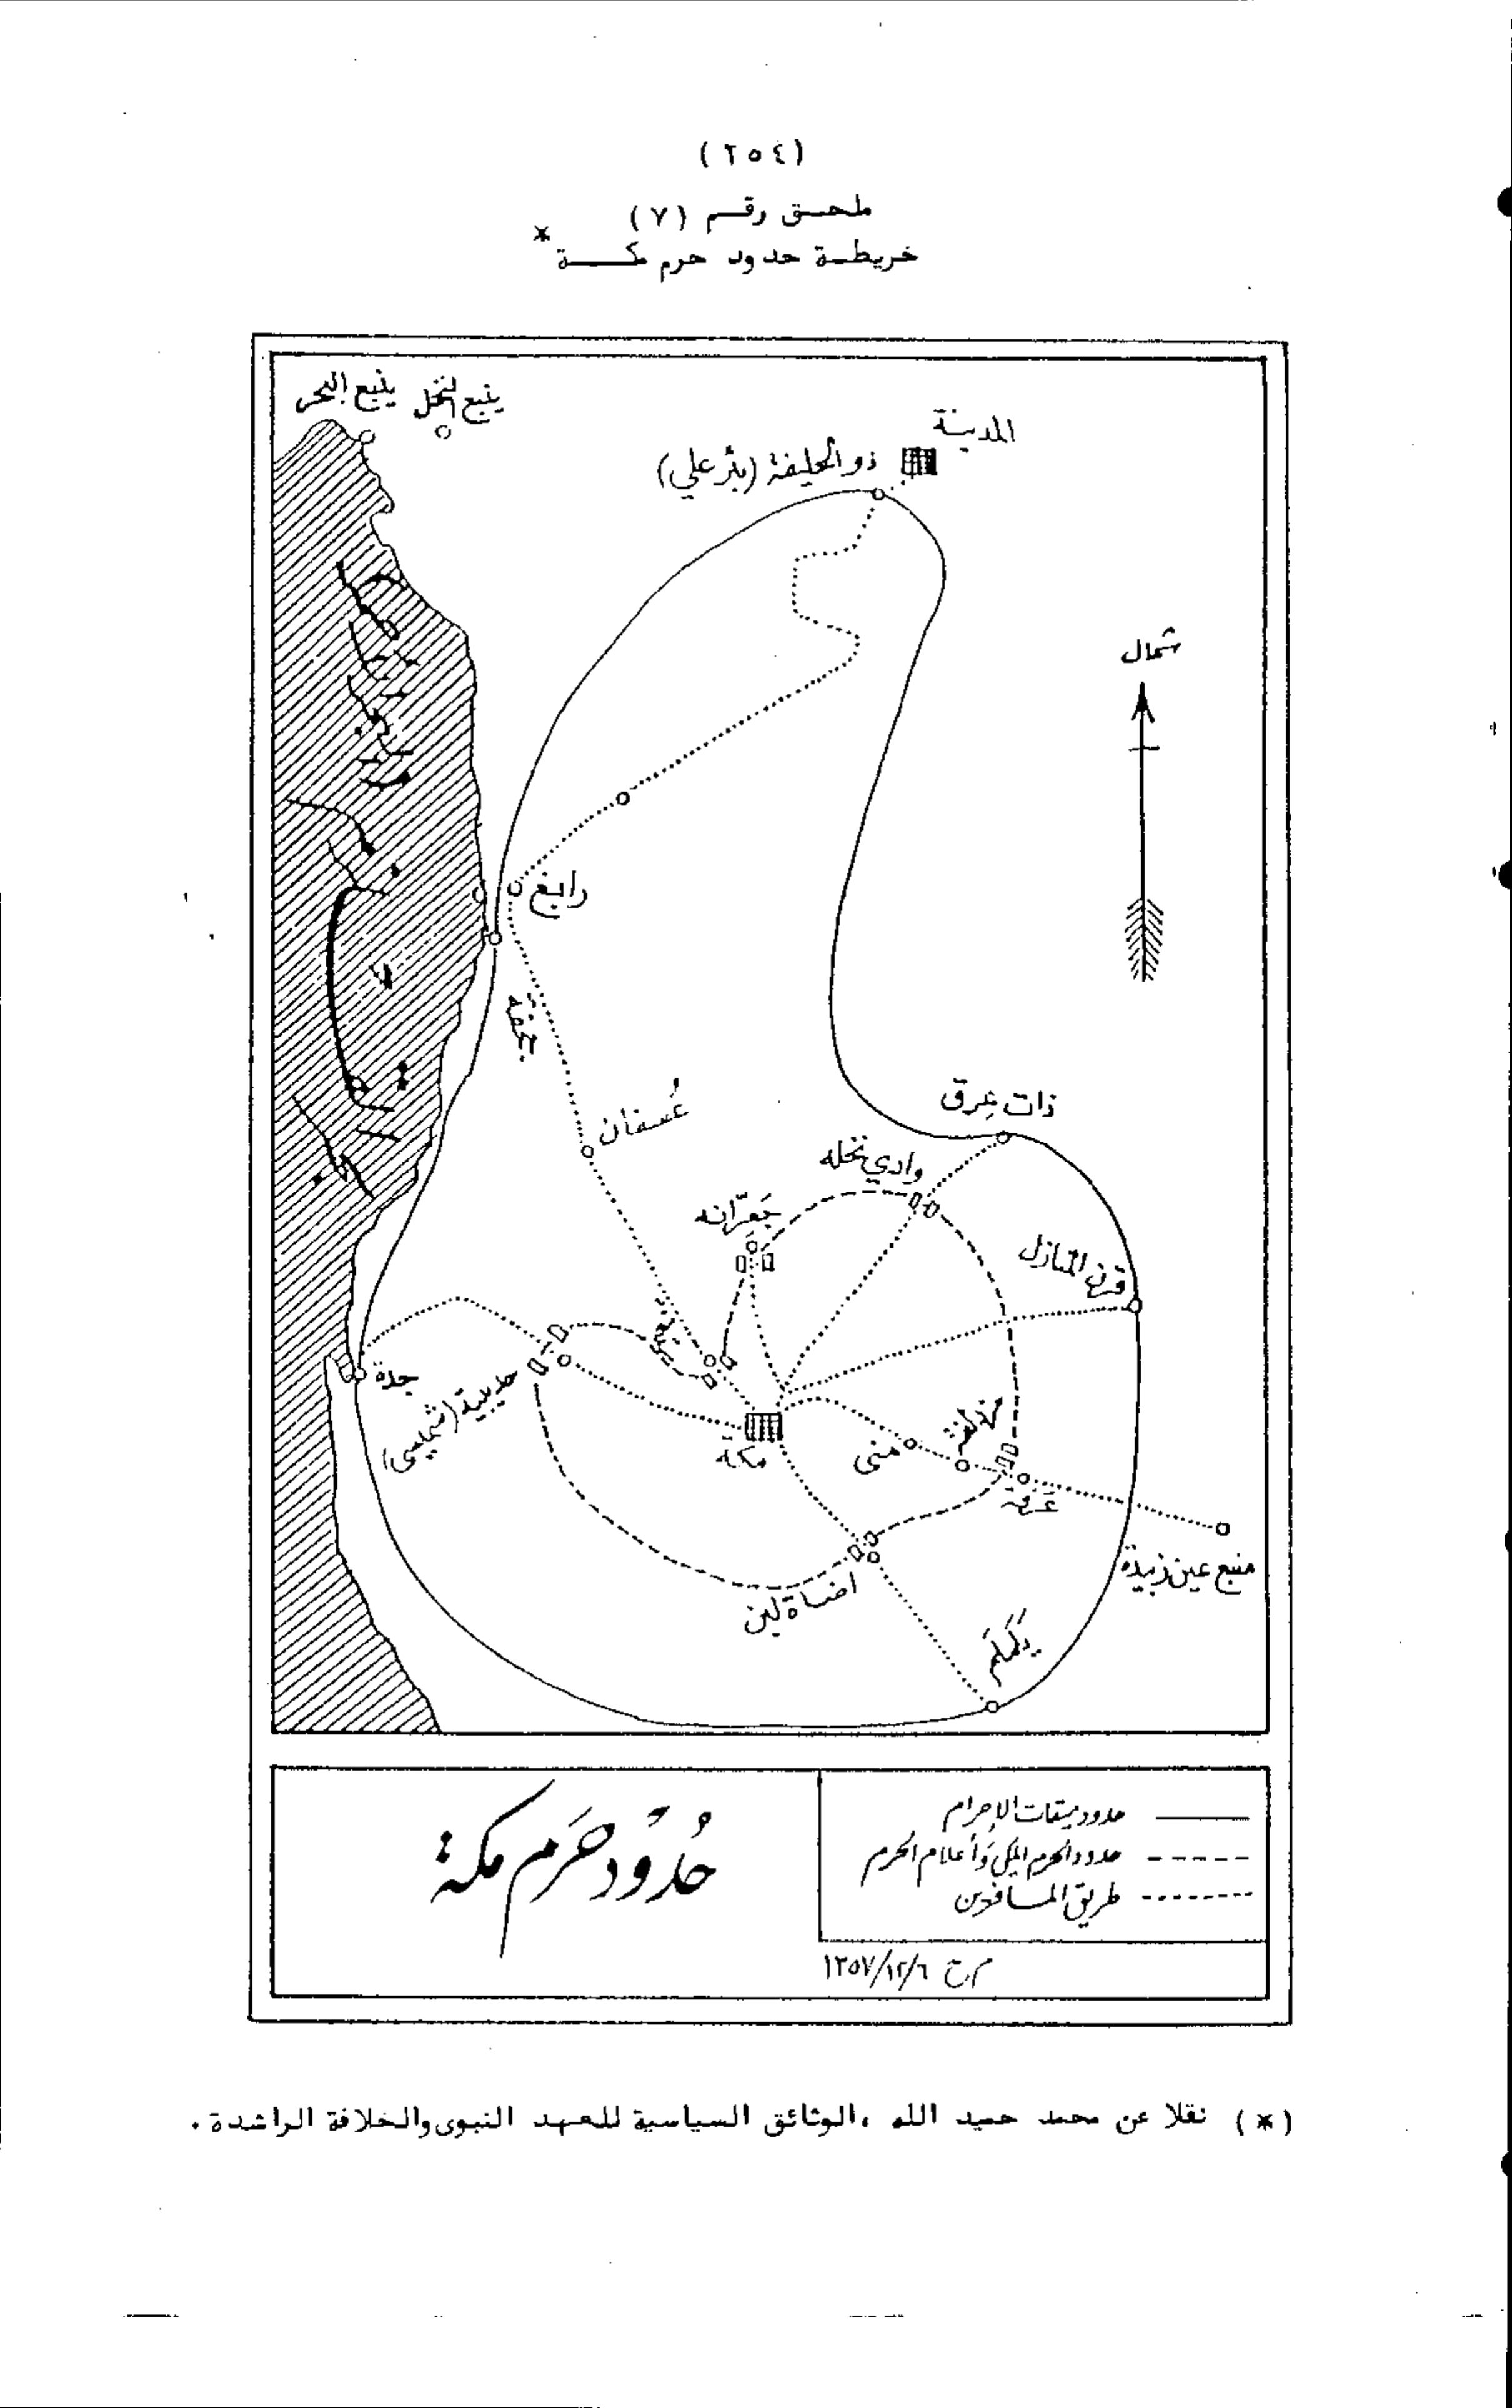 (٢٥٤)
ملحق رقم (٧)
خريطة حدود حرم مكة *
ينبع البحر
ينبع النخل
المدينة
ذو الحليفة (بئر علي)
شمال
رابغ
جحفة
عُسفان
ذات عِرق
وادي نخله
جَعرّانه
قرن المنازل
تنعيم
جدة
حديبية (شميسي)
مكة
منى
مزدلفة
عَرفة
منبع عين زبيدة
اضاة لبن
يَلَملَم
حدود ميقات الإحرام
حدود الحرم المكي وأعلام الحرم
طريق المسافرين
حُدُود حَرَم مكة
م ح ١٣٥٧/١٢/٦
(*) نقلا عن محمد حميد الله ،الوثائق السياسية للعهد النبوى والخلافة الراشدة .